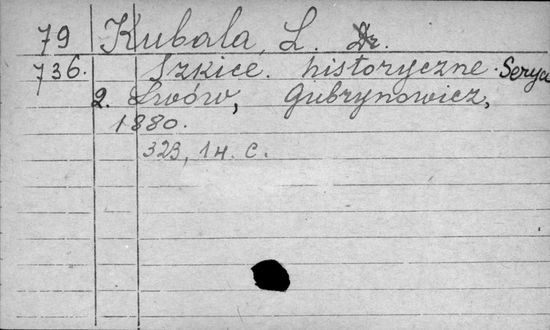 79 Kubala, L. Dr.
736. Szkice historyczne. Serya
2. Lwów, Gubrynowicz,
1880.
323, 1 н. с.